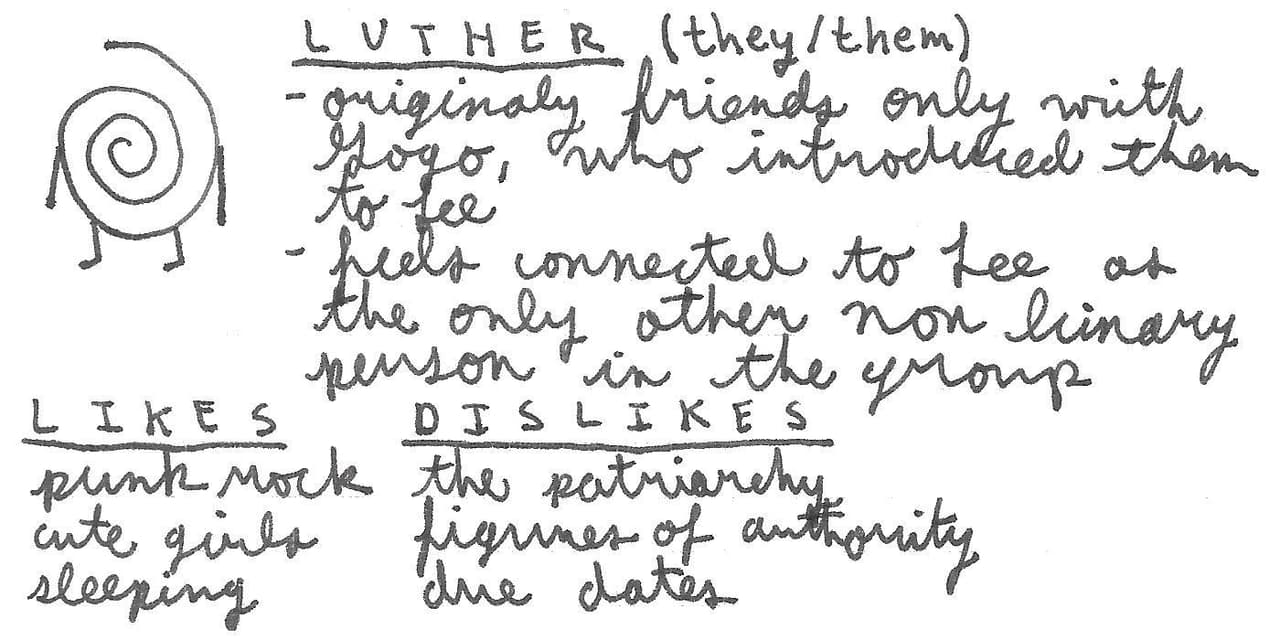 LUTHER (they/them)
- originaly friends only with
Gogo, who introduced them
to Lee
- feels connected to Lee as
the only other non binary
person in the group
LIKES DISLIKES
punk rock the patriarchy
cute girls figures of authority
sleeping due dates